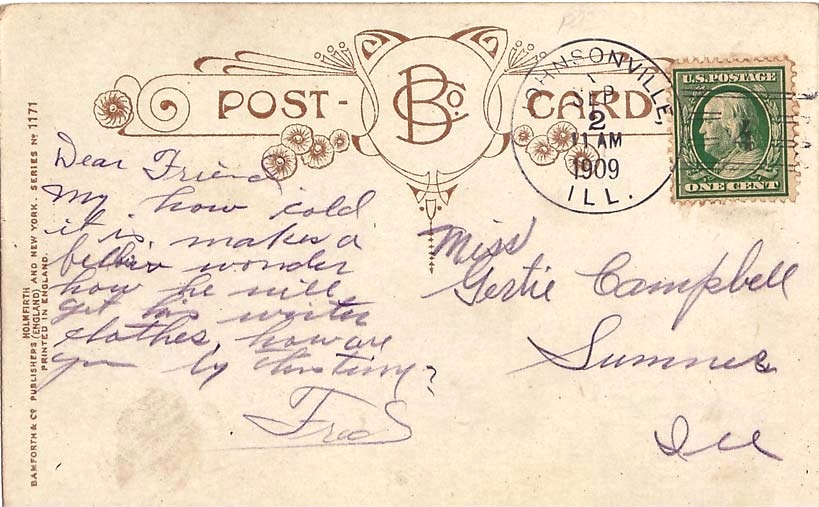 POST-
BCo.
CARD
JOHNSONVILLE,
1
SEP
2
11 AM
1909
ILL.
U.S. POSTAGE
ONE CENT
Dear Friend
My how cold
it is, makes a
wonder
how he will
get his winter
clothes, how are
you by this time?
Fred
Miss
Gertie Campbell
Sumner
Ill
BAMFORTH & Co. PUBLISHERS (ENGLAND) AND NEW YORK. SERIES No 1171
HOLMFIRTH
PRINTED IN ENGLAND.